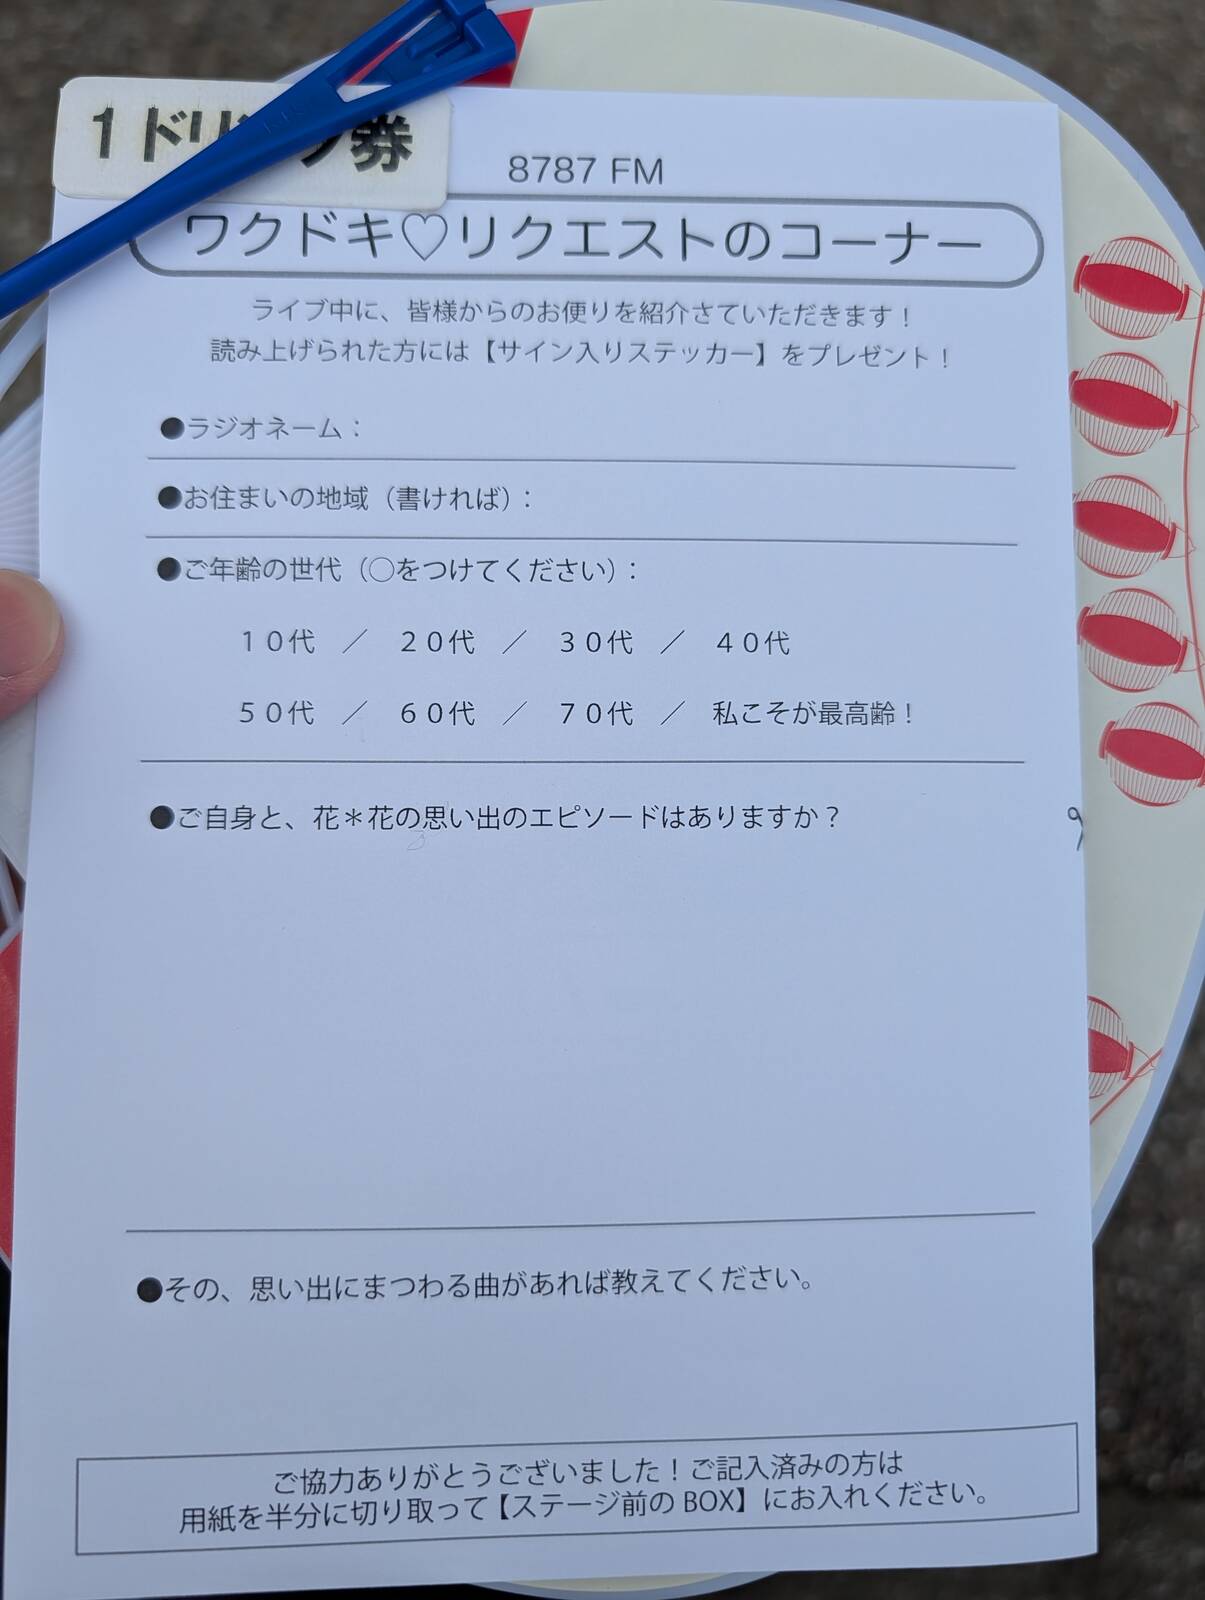 1ドリンク券
8787 FM
ワクドキ♡リクエストのコーナー
ライブ中に、皆様からのお便りを紹介さていただきます！
読み上げられた方には【サイン入りステッカー】をプレゼント！
●ラジオネーム：
●お住まいの地域（書ければ）：
●ご年齢の世代（○をつけてください）：
10代 ／ 20代 ／ 30代 ／ 40代
50代 ／ 60代 ／ 70代 ／ 私こそが最高齢！
●ご自身と、花＊花の思い出のエピソードはありますか？
●その、思い出にまつわる曲があれば教えてください。
ご協力ありがとうございました！ご記入済みの方は
用紙を半分に切り取って【ステージ前のBOX】にお入れください。